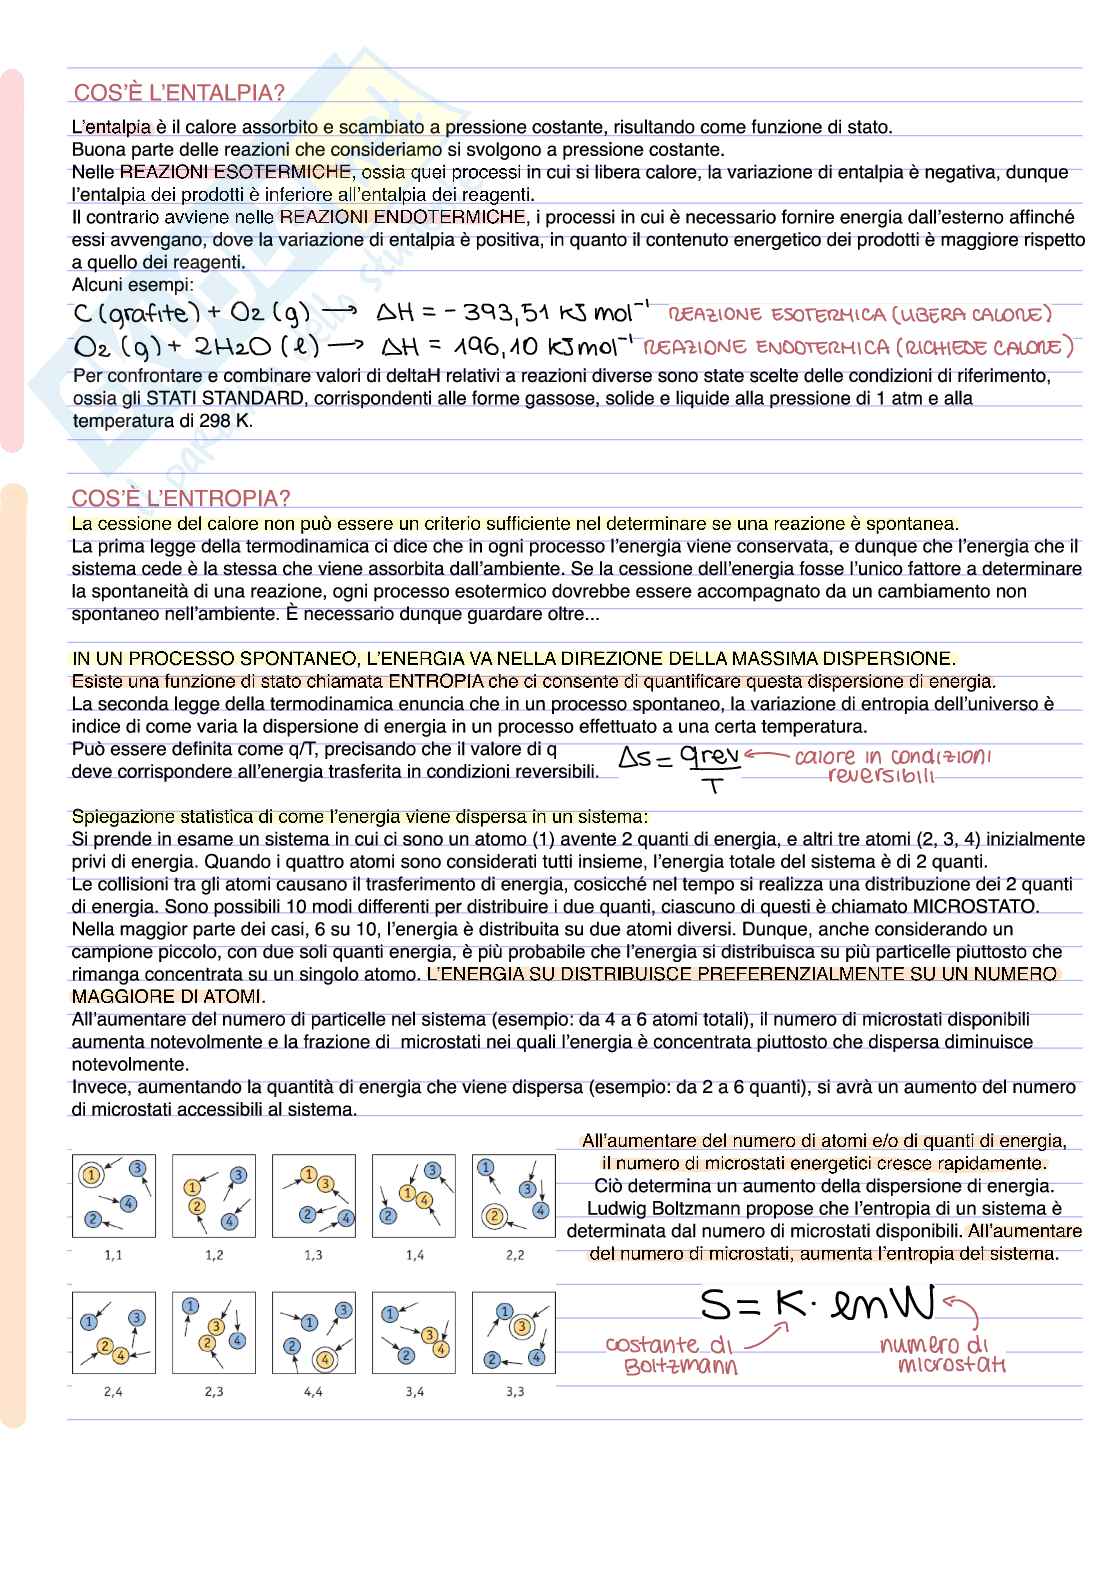 COS'È L'ENTALPIA?
L'entalpia è il calore assorbito e scambiato a pressione costante, risultando come funzione di stato.
Buona parte delle reazioni che consideriamo si svolgono a pressione costante.
Nelle REAZIONI ESOTERMICHE, ossia quei processi in cui si libera calore, la variazione di entalpia è negativa, dunque
l'entalpia dei prodotti è inferiore all'entalpia dei reagenti.
Il contrario avviene nelle REAZIONI ENDOTERMICHE, i processi in cui è necessario fornire energia dall'esterno affinché
essi avvengano, dove la variazione di entalpia è positiva, in quanto il contenuto energetico dei prodotti è maggiore rispetto
a quello dei reagenti.
Alcuni esempi:
C (grafite) + O2 (g) → ΔH = - 393,51 KJ mol⁻¹ REAZIONE ESOTERMICA (LIBERA CALORE)
O2 (g) + 2H2O (l) → ΔH = 196,10 KJ mol⁻¹ REAZIONE ENDOTERMICA (RICHIEDE CALORE)
Per confrontare e combinare valori di deltaH relativi a reazioni diverse sono state scelte delle condizioni di riferimento,
ossia gli STATI STANDARD, corrispondenti alle forme gassose, solide e liquide alla pressione di 1 atm e alla
temperatura di 298 K.
COS'È L'ENTROPIA?
La cessione del calore non può essere un criterio sufficiente nel determinare se una reazione è spontanea.
La prima legge della termodinamica ci dice che in ogni processo l'energia viene conservata, e dunque che l'energia che il
sistema cede è la stessa che viene assorbita dall'ambiente. Se la cessione dell'energia fosse l'unico fattore a determinare
la spontaneità di una reazione, ogni processo esotermico dovrebbe essere accompagnato da un cambiamento non
spontaneo nell'ambiente. È necessario dunque guardare oltre...
IN UN PROCESSO SPONTANEO, L'ENERGIA VA NELLA DIREZIONE DELLA MASSIMA DISPERSIONE.
Esiste una funzione di stato chiamata ENTROPIA che ci consente di quantificare questa dispersione di energia.
La seconda legge della termodinamica enuncia che in un processo spontaneo, la variazione di entropia dell'universo è
indice di come varia la dispersione di energia in un processo effettuato a una certa temperatura.
Può essere definita come q/T, precisando che il valore di q
deve corrispondere all'energia trasferita in condizioni reversibili.
Δs = qrev ← calore in condizioni
T reversibili
Spiegazione statistica di come l'energia viene dispersa in un sistema:
Si prende in esame un sistema in cui ci sono un atomo (1) avente 2 quanti di energia, e altri tre atomi (2, 3, 4) inizialmente
privi di energia. Quando i quattro atomi sono considerati tutti insieme, l'energia totale del sistema è di 2 quanti.
Le collisioni tra gli atomi causano il trasferimento di energia, cosicché nel tempo si realizza una distribuzione dei 2 quanti
di energia. Sono possibili 10 modi differenti per distribuire i due quanti, ciascuno di questi è chiamato MICROSTATO.
Nella maggior parte dei casi, 6 su 10, l'energia è distribuita su due atomi diversi. Dunque, anche considerando un
campione piccolo, con due soli quanti energia, è più probabile che l'energia si distribuisca su più particelle piuttosto che
rimanga concentrata su un singolo atomo. L'ENERGIA SU DISTRIBUISCE PREFERENZIALMENTE SU UN NUMERO
MAGGIORE DI ATOMI.
All'aumentare del numero di particelle nel sistema (esempio: da 4 a 6 atomi totali), il numero di microstati disponibili
aumenta notevolmente e la frazione di microstati nei quali l'energia è concentrata piuttosto che dispersa diminuisce
notevolmente.
Invece, aumentando la quantità di energia che viene dispersa (esempio: da 2 a 6 quanti), si avrà un aumento del numero
di microstati accessibili al sistema.
1 3 4 2
1 3 2 4
1 3 2 4
3 1 4 2
1 3 4 2
1,1 1,2 1,3 1,4 2,2
1 3 2 4
1 3 2 4
3 1 2 4
1 3 4 2
1 3 2 4
2,4 2,3 4,4 3,4 3,3
All'aumentare del numero di atomi e/o di quanti di energia,
il numero di microstati energetici cresce rapidamente.
Ciò determina un aumento della dispersione di energia.
Ludwig Boltzmann propose che l'entropia di un sistema è
determinata dal numero di microstati disponibili. All'aumentare
del numero di microstati, aumenta l'entropia del sistema.
S = K · lnW
costante di numero di
Boltzmann microstati